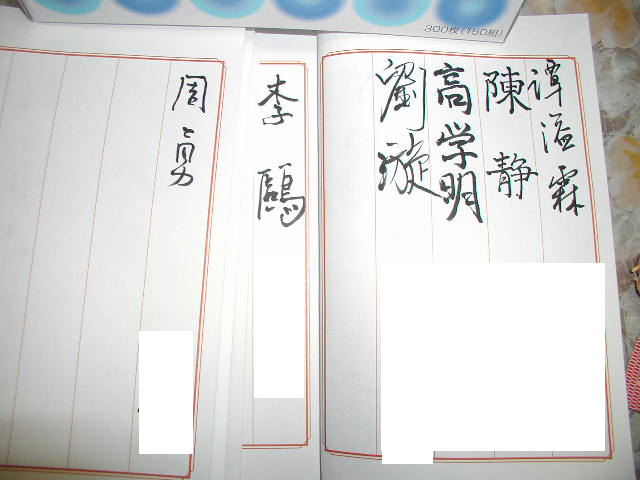 300枚(150組)
譚溢霖
陳静
高学明
劉璇
李鷗
周勇